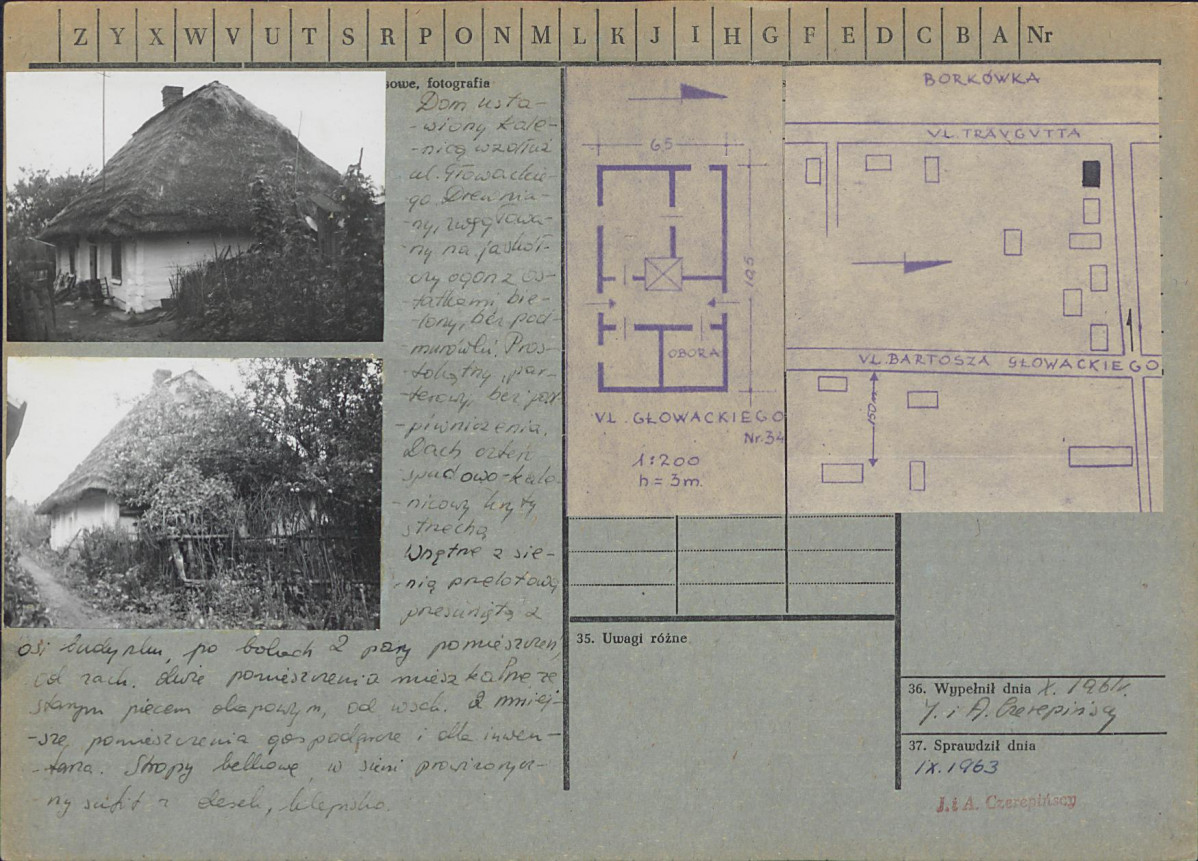 Z Y X W V U T S R P O N M L K J I H G F E D C B A Nr
sowe, fotografia
Dom usta-
-wiony kale-
-nicą wzdłuż
ul. Głowackie-
go. Drewnia-
ny, węgłowa-
ny na jaskół-
czy ogon z os-
tatkami, bie-
lony, bez pod-
murówki. Pros-
tokątny, par-
terowy, bez pod-
-piwniczenia.
Dach cztero
spadowo-kale-
nicowy kryty
strzechą
Wnętrze z sie-
nią przelotową
przesuniętą z
osi budynku, po bokach 2 pary pomieszczeń,
od zach. dwie pomieszczenia mieszkalne ze
starym piecem okapowym, od wsch. 2 mniej-
-sze pomieszczenia gospodarcze i dla inwen-
-tarza. Stropy belkowe, w sieni prowizorycz-
ny sufit z desek, klepisko.
65
10,5
OBORA
UL. GŁOWACKIEGO
Nr. 34
1:200
h = 3m.
BORKÓWKA
UL. TRAUGUTTA
UL. BARTOSZA GŁOWACKIEGO
150 m.
35. Uwagi różne
36. Wypełnił dnia X. 1961r.
J. i A. Czerepińscy
37. Sprawdził dnia
IX. 1963
J. i A. Czerepińscy